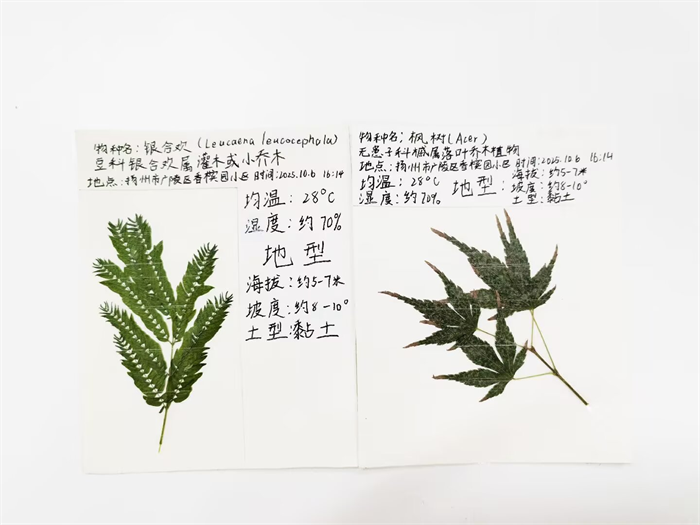 物种名：银合欢(Leucaena leucocephala)
豆科银合欢属灌木或小乔木
地点：扬州市广陵区香槟园小区 时间：2025.10.6 16:14
均温：28°C
湿度：约70%
地型
海拔：约5-7米
坡度：约8-10°
土型：黏土
物种名：枫树(Acer)
无患子科槭属落叶乔木植物
地点：扬州市广陵区香槟园小区 时间：2025.10.6 16:14
均温：28°C
湿度：约70%
地型：
海拔：约5-7米
坡度：约8-10°
土型：黏土